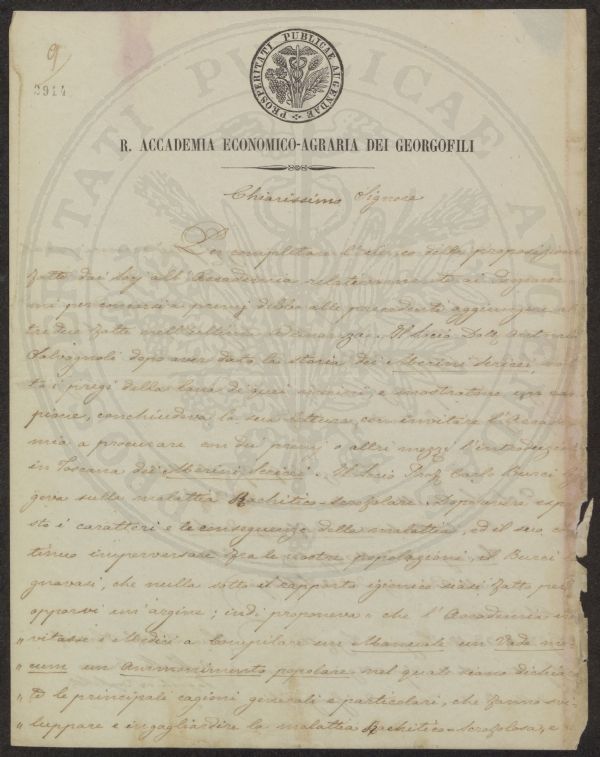 9
2914
PROSPERITATI PUBLICAE AUGENDAE
R. ACCADEMIA ECONOMICO-AGRARIA DEI GEORGOFILI
Chiarissimo Signore
Per completare l'elenco delle proposizioni
fatte dai Sig all'Accademia relativamente ai
mi per concorsi a premj debbo alle precedenti aggiungere al
tre due fatte nell'ultima adunanza. Il Socio Dott. Antonio
Salvagnoli dopo aver dato la storia dei Merini Serici,
ta i pregi della lana di quei
pione, conchiudeva la sua lettura con invitare l'Accade
mia a procurare con dei premj o altri mezzi l'introduzione
in Toscana dei Merini Serici. Il Socio Prof. Carlo Burci
geva sulla malattia Rachitico-scrofolare. Dopo avere espo
sto i caratteri e le conseguenze della malattia, ed il suo con
tinuo imperversare fra le nostre popolazioni, il Burci
gnavasi, che nulla sotto il rapporto igienico siasi fatto per
opporvi un'argine; indi proponeva "che l'Accademia in
" vitasse i Medici a compilare un Manuale un Vade me
" cum un Ammonimento popolare nel quale siano
" le principali cagioni generali e particolari, che fanno svi
" luppare e ingagliardire la malattia Rachitico-scrofolosa, e